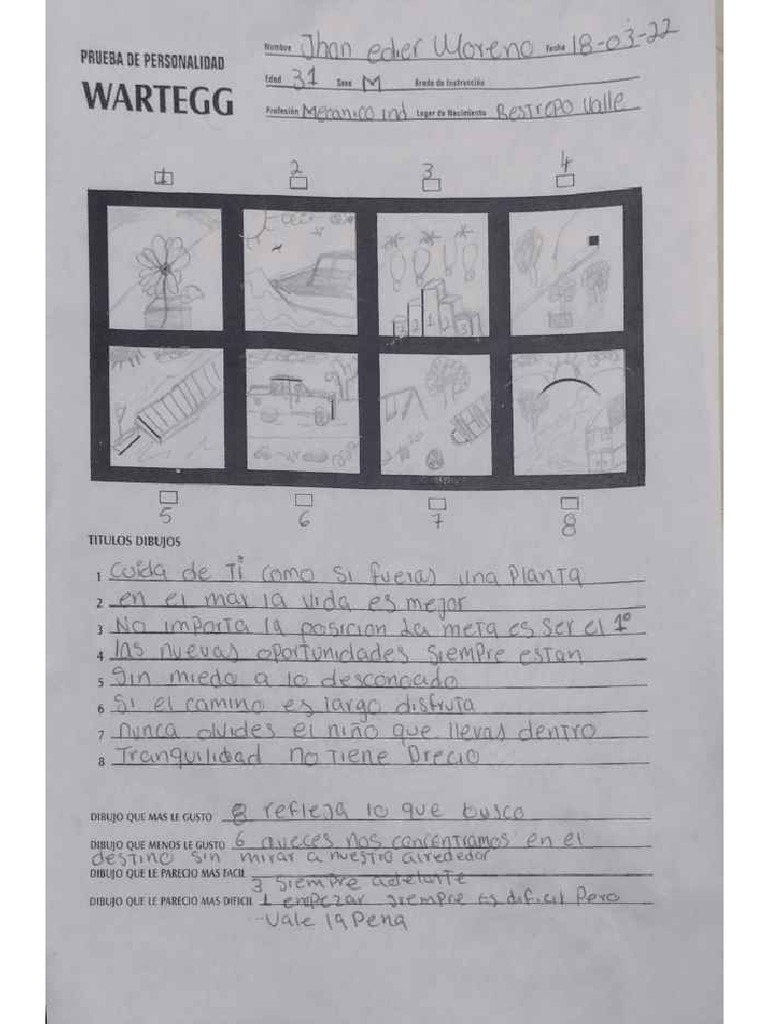 PRUEBA DE PERSONALIDAD
WARTEGG
Nombre Jhan edier Moreno Fecha 18-03-22
Edad 31 Sexo M Grado de Instrucción
Profesión Mecanico ind Lugar de Nacimiento Restrepo Valle
1 2 3 4
5 6 7 8
TITULOS DIBUJOS
1 Cuida de Ti como si fueras una Planta
2 en el mar la vida es mejor
3 No importa la posicion La meta es ser el 1°
4 las nuevas oportunidades siempre estan
5 Sin miedo a lo desconoado
6 Si el camino es largo disfruta
7 nunca olvides el niño que llevas dentro
8 Tranquilidad no Tiene Precio
DIBUJO QUE MAS LE GUSTO 8 refleja lo que busco
DIBUJO QUE MENOS LE GUSTO 6 aveces nos concentramos en el
destino sin mirar a nuestro alrededor
DIBUJO QUE LE PARECIO MAS FACIL
3 siempre adelante
DIBUJO QUE LE PARECIO MAS DIFICIL 1 empezar siempre es dificil Pero
Vale la Pena